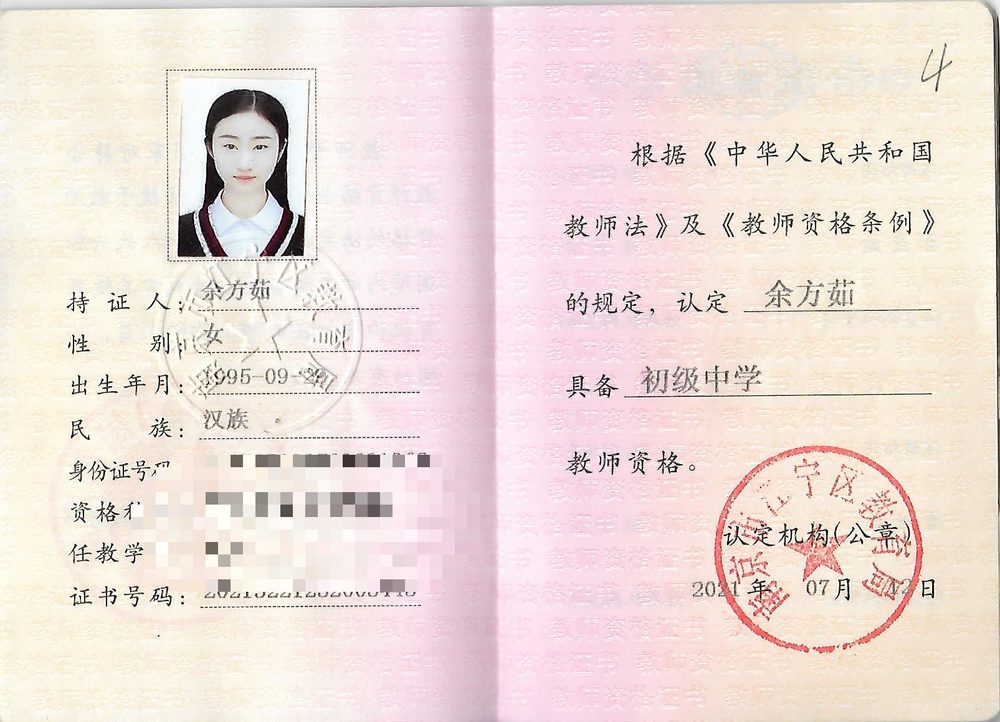 持证人：余方茹
性别：女
出生年月：1995-09-29
民族：汉族
身份证号
资格
任教学
证书号码：
4
根据《中华人民共和国
教师法》及《教师资格条例》
的规定，认定 余方茹
具备 初级中学
教师资格。
南京市江宁区教育局
认定机构(公章)
2021年07月12日